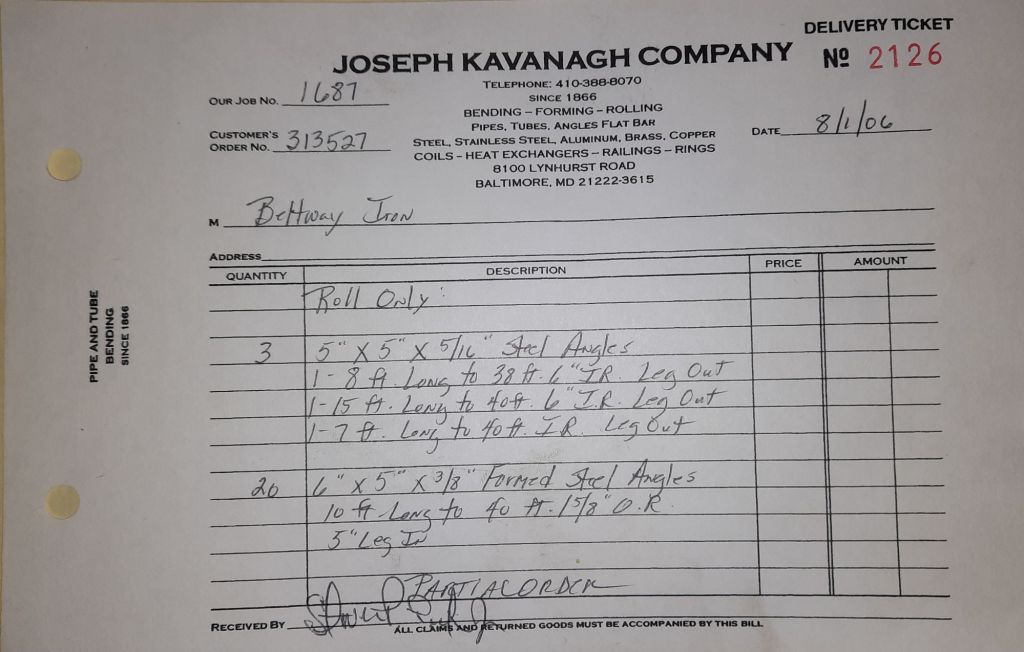 DELIVERY TICKET
JOSEPH KAVANAGH COMPANY
Nº 2126
TELEPHONE: 410-388-8070
SINCE 1866
BENDING – FORMING – ROLLING
PIPES, TUBES, ANGLES FLAT BAR
STEEL, STAINLESS STEEL, ALUMINUM, BRASS, COPPER
COILS – HEAT EXCHANGERS – RAILINGS – RINGS
8100 LYNHURST ROAD
BALTIMORE, MD 21222-3615
OUR JOB NO. 1687
CUSTOMER'S
ORDER NO. 313527
DATE 8/1/06
M Beltway Iron
ADDRESS
QUANTITY DESCRIPTION PRICE AMOUNT
Roll Only:
3 5" X 5" X 5/16" Steel Angles
1-8 ft. Long to 38 ft. 6" I.R. Leg Out
1-15 ft. Long to 40 ft. 6" I.R. Leg Out
1-7 ft. Long to 40 ft. I.R. Leg Out
20 6" X 5" X 3/8" Formed Steel Angles
10 ft Long to 40 ft. 1 5/8" O.R.
5" Leg In
PARTIAL ORDER
RECEIVED BY
ALL CLAIMS AND RETURNED GOODS MUST BE ACCOMPANIED BY THIS BILL
PIPE AND TUBE
BENDING
SINCE 1866